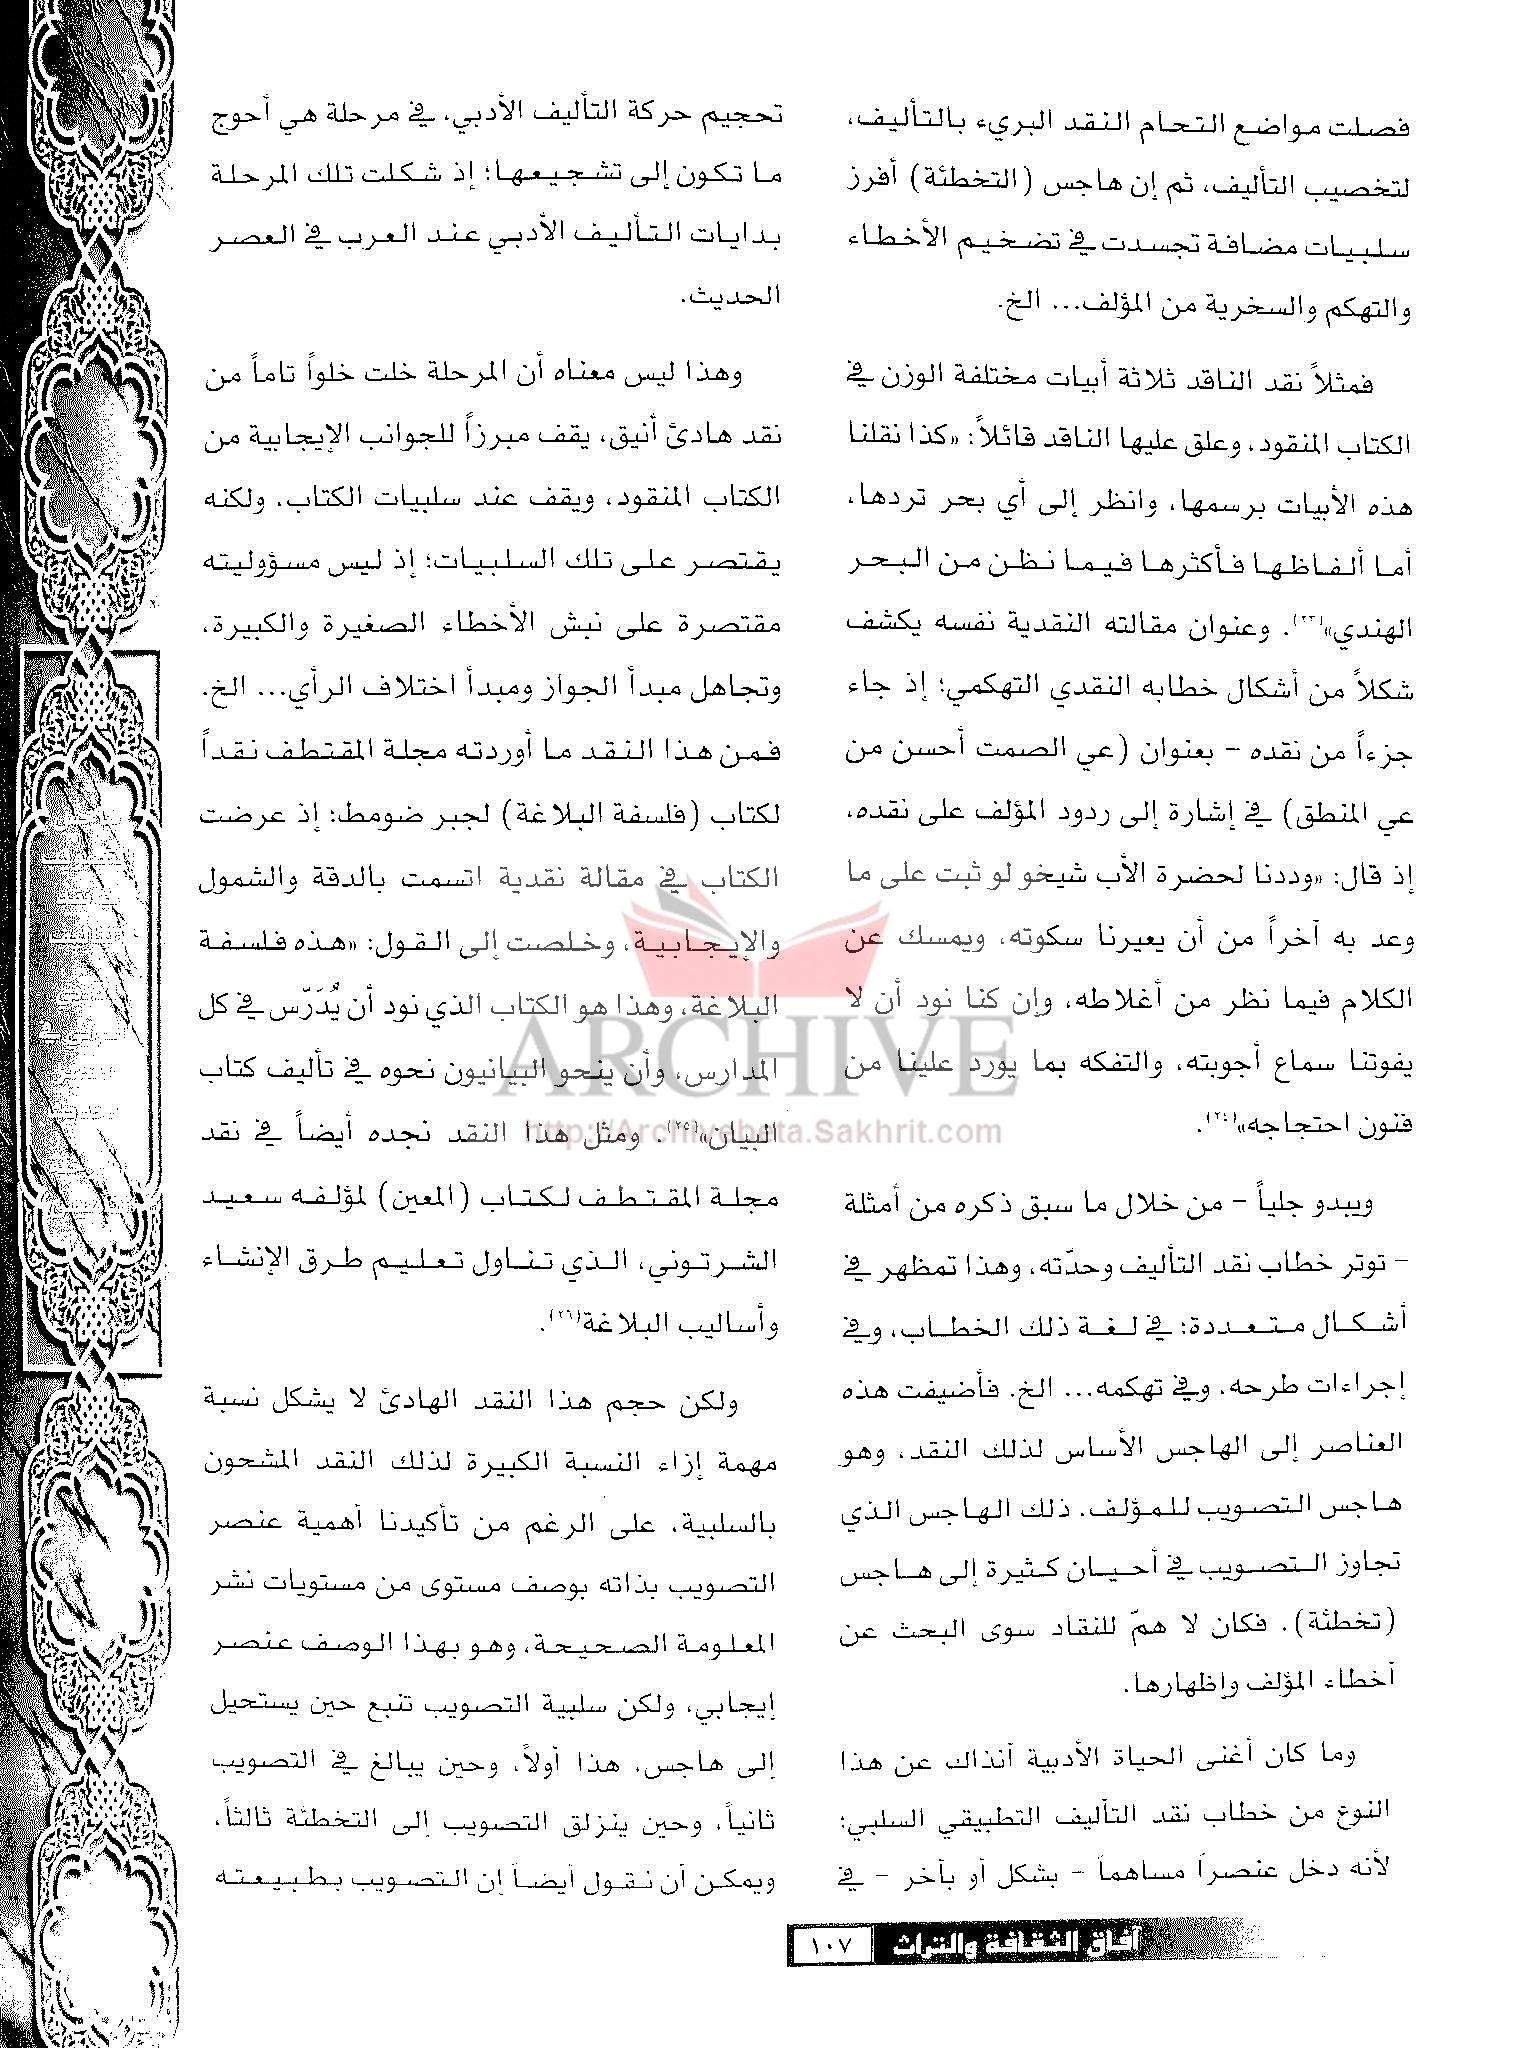 فصلت مواضع التحام النقد البريء بالتأليف،
لتخصيب التأليف، ثم إن هاجس (التخطئة) أفرز
سلبيات مضافة تجسدت في تضخيم الأخطاء
والتهكم والسخرية من المؤلف... الخ.
فمثلاً نقد الناقد ثلاثة أبيات مختلفة الوزن في
الكتاب المنقود، وعلق عليها الناقد قائلاً: «كذا نقلنا
هذه الأبيات برسمها، وانظر إلى أي بحر تردها،
أما ألفاظها فأكثرها فيما نظن من البحر
الهندي»(٢٣). وعنوان مقالته النقدية نفسه يكشف
شكلاً من أشكال خطابه النقدي التهكمي؛ إذ جاء
جزءاً من نقده - بعنوان (عي الصمت أحسن من
عي المنطق) في إشارة إلى ردود المؤلف على نقده،
إذ قال: «وددنا لحضرة الأب شيخو لو ثبت على ما
وعد به آخراً من أن يعيرنا سكوته، ويمسك عن
الكلام فيما نظر من أغلاطه، وإن كنا نود أن لا
يفوتنا سماع أجوبته، والتفكه بما يورد علينا من
فنون احتجاجه»(٢٤).
ويبدو جلياً - من خلال ما سبق ذكره من أمثلة
- توتر خطاب نقد التأليف وحدّته، وهذا تمظهر في
أشكال متعددة: في لغة ذلك الخطاب، وفي
إجراءات طرحه، وفي تهكمه... الخ. فأضيفت هذه
العناصر إلى الهاجس الأساس لذلك النقد، وهو
هاجس التصويب للمؤلف. ذلك الهاجس الذي
تجاوز التصويب في أحيان كثيرة إلى هاجس
(تخطئة). فكان لا همّ للنقاد سوى البحث عن
أخطاء المؤلف وإظهارها.
وما كان أغنى الحياة الأدبية آنذاك عن هذا
النوع من خطاب نقد التأليف التطبيقي السلبي؛
لأنه دخل عنصراً مساهماً - بشكل أو بآخر - في
تحجيم حركة التأليف الأدبي، في مرحلة هي أحوج
ما تكون إلى تشجيعها؛ إذ شكلت تلك المرحلة
بدايات التأليف الأدبي عند العرب في العصر
الحديث.
وهذا ليس معناه أن المرحلة خلت خلواً تاماً من
نقد هادئ أنيق، يقف مبرزاً للجوانب الإيجابية من
الكتاب المنقود، ويقف عند سلبيات الكتاب، ولكنه
يقتصر على تلك السلبيات؛ إذ ليس مسؤوليته
مقتصرة على نبش الأخطاء الصغيرة والكبيرة،
وتجاهل مبدأ الجواز ومبدأ اختلاف الرأي... الخ.
فمن هذا النقد ما أوردته مجلة المقتطف نقداً
لكتاب (فلسفة البلاغة) لجبر ضومط؛ إذ عرضت
الكتاب في مقالة نقدية اتسمت بالدقة والشمول
والإيجابية، وخلصت إلى القول: «هذه فلسفة
البلاغة، وهذا هو الكتاب الذي نود أن يُدَرّس في كل
المدارس، وأن ينحو البيانيون نحوه في تأليف كتاب
البيان»(٢٥). ومثل هذا النقد نجده أيضاً في نقد
مجلة المقتطف لكتاب (المعين) لمؤلفه سعيد
الشرتوني، الذي تناول تعليم طرق الإنشاء
وأساليب البلاغة(٢٦).
ولكن حجم هذا النقد الهادئ لا يشكل نسبة
مهمة إزاء النسبة الكبيرة لذلك النقد المشحون
بالسلبية، على الرغم من تأكيدنا أهمية عنصر
التصويب بذاته بوصف مستوى من مستويات نشر
المعلومة الصحيحة، وهو بهذا الوصف عنصر
إيجابي، ولكن سلبية التصويب تنبع حين يستحيل
إلى هاجس، هذا أولاً، وحين يبالغ في التصويب
ثانياً، وحين ينزلق التصويب إلى التخطئة ثالثاً،
ويمكن أن نقول أيضاً إن التصويب بطبيعته
ARCHIVE
http://Archivebeta.Sakhrit.com
آفاق الثقافة والتراث ١٠٧